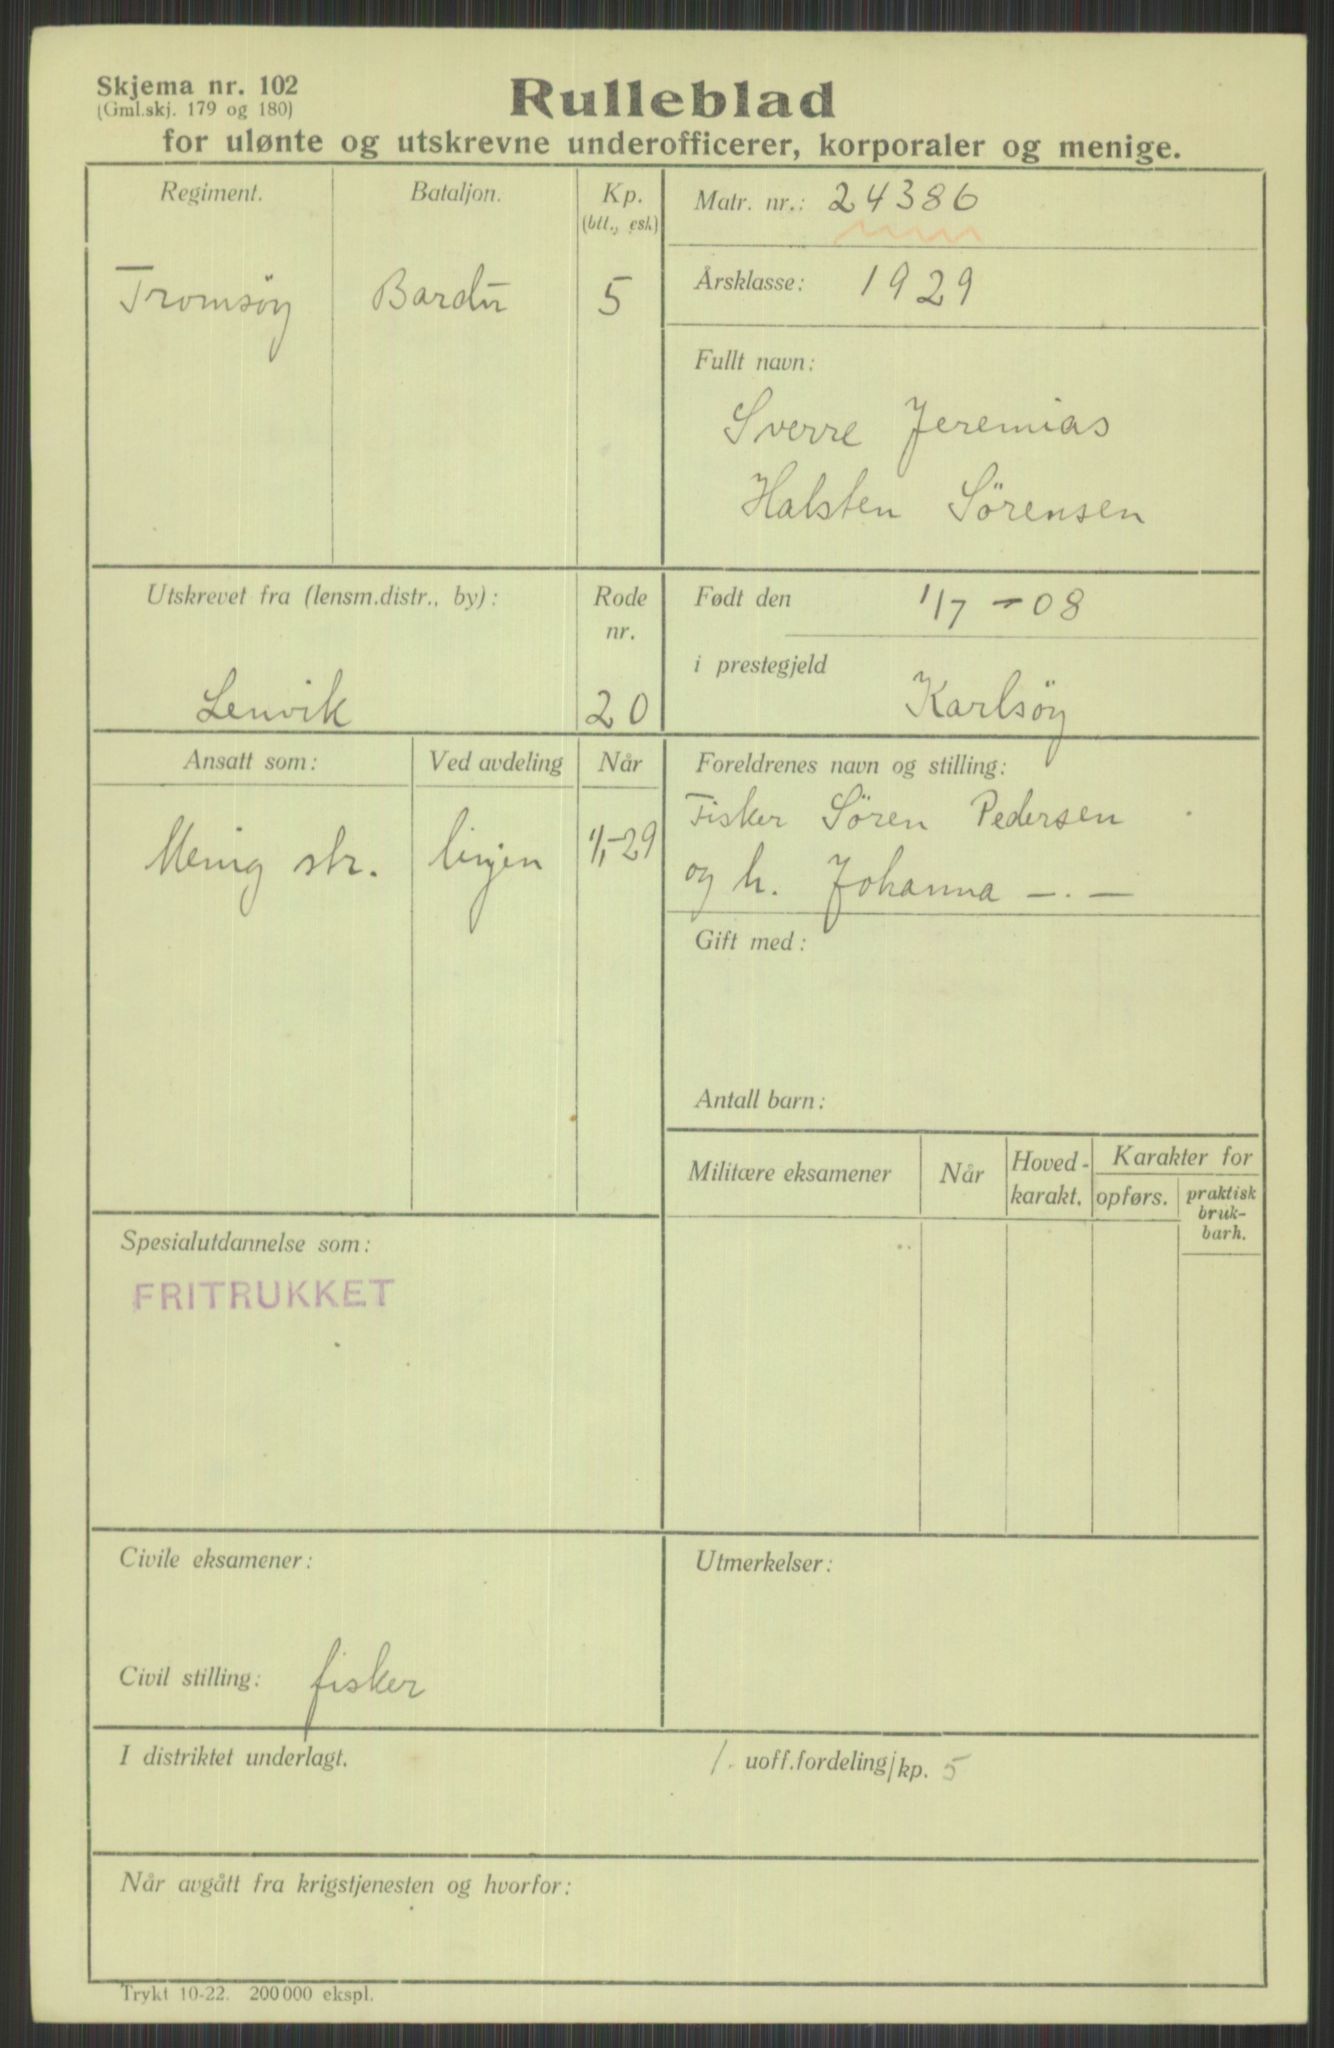 Skjema nr. 102
(Gml.skj. 179 og 180)
Rulleblad
for ulønte og utskrevne underofficerer, korporaler og menige.
Regiment.
Bataljon.
Kp.
(btt., esk)
Tromsöy
Bardu
5
Matr. nr.: 24386
Årsklasse: 1929
Fullt navn:
Sverre Jeremias
Halsten Sörensen
Utskrevet fra (lensm.distr., by):
Rode
nr.
Lenvik
20
Født den 1/7 - 08
i prestegjeld
Karlsöy
Ansatt som:
Ved avdeling
Når
Menig str.
linjen
1/1-29
Foreldrenes navn og stilling:
Fisker Sören Pedersen
og h. Johanna — . —
Gift med:
Antall barn:
Militære eksamener
Når
Hoved-
karakt.
Karakter for
opførs.
praktisk
bruk-
barh.
Spesialutdannelse som:
FRITRUKKET
Civile eksamener:
Civil stilling: fisker
Utmerkelser:
I distriktet underlagt.
1. uoff.fordeling/kp. 5
Når avgått fra krigstjenesten og hvorfor:
Trykt 10-22. 200 000 ekspl.